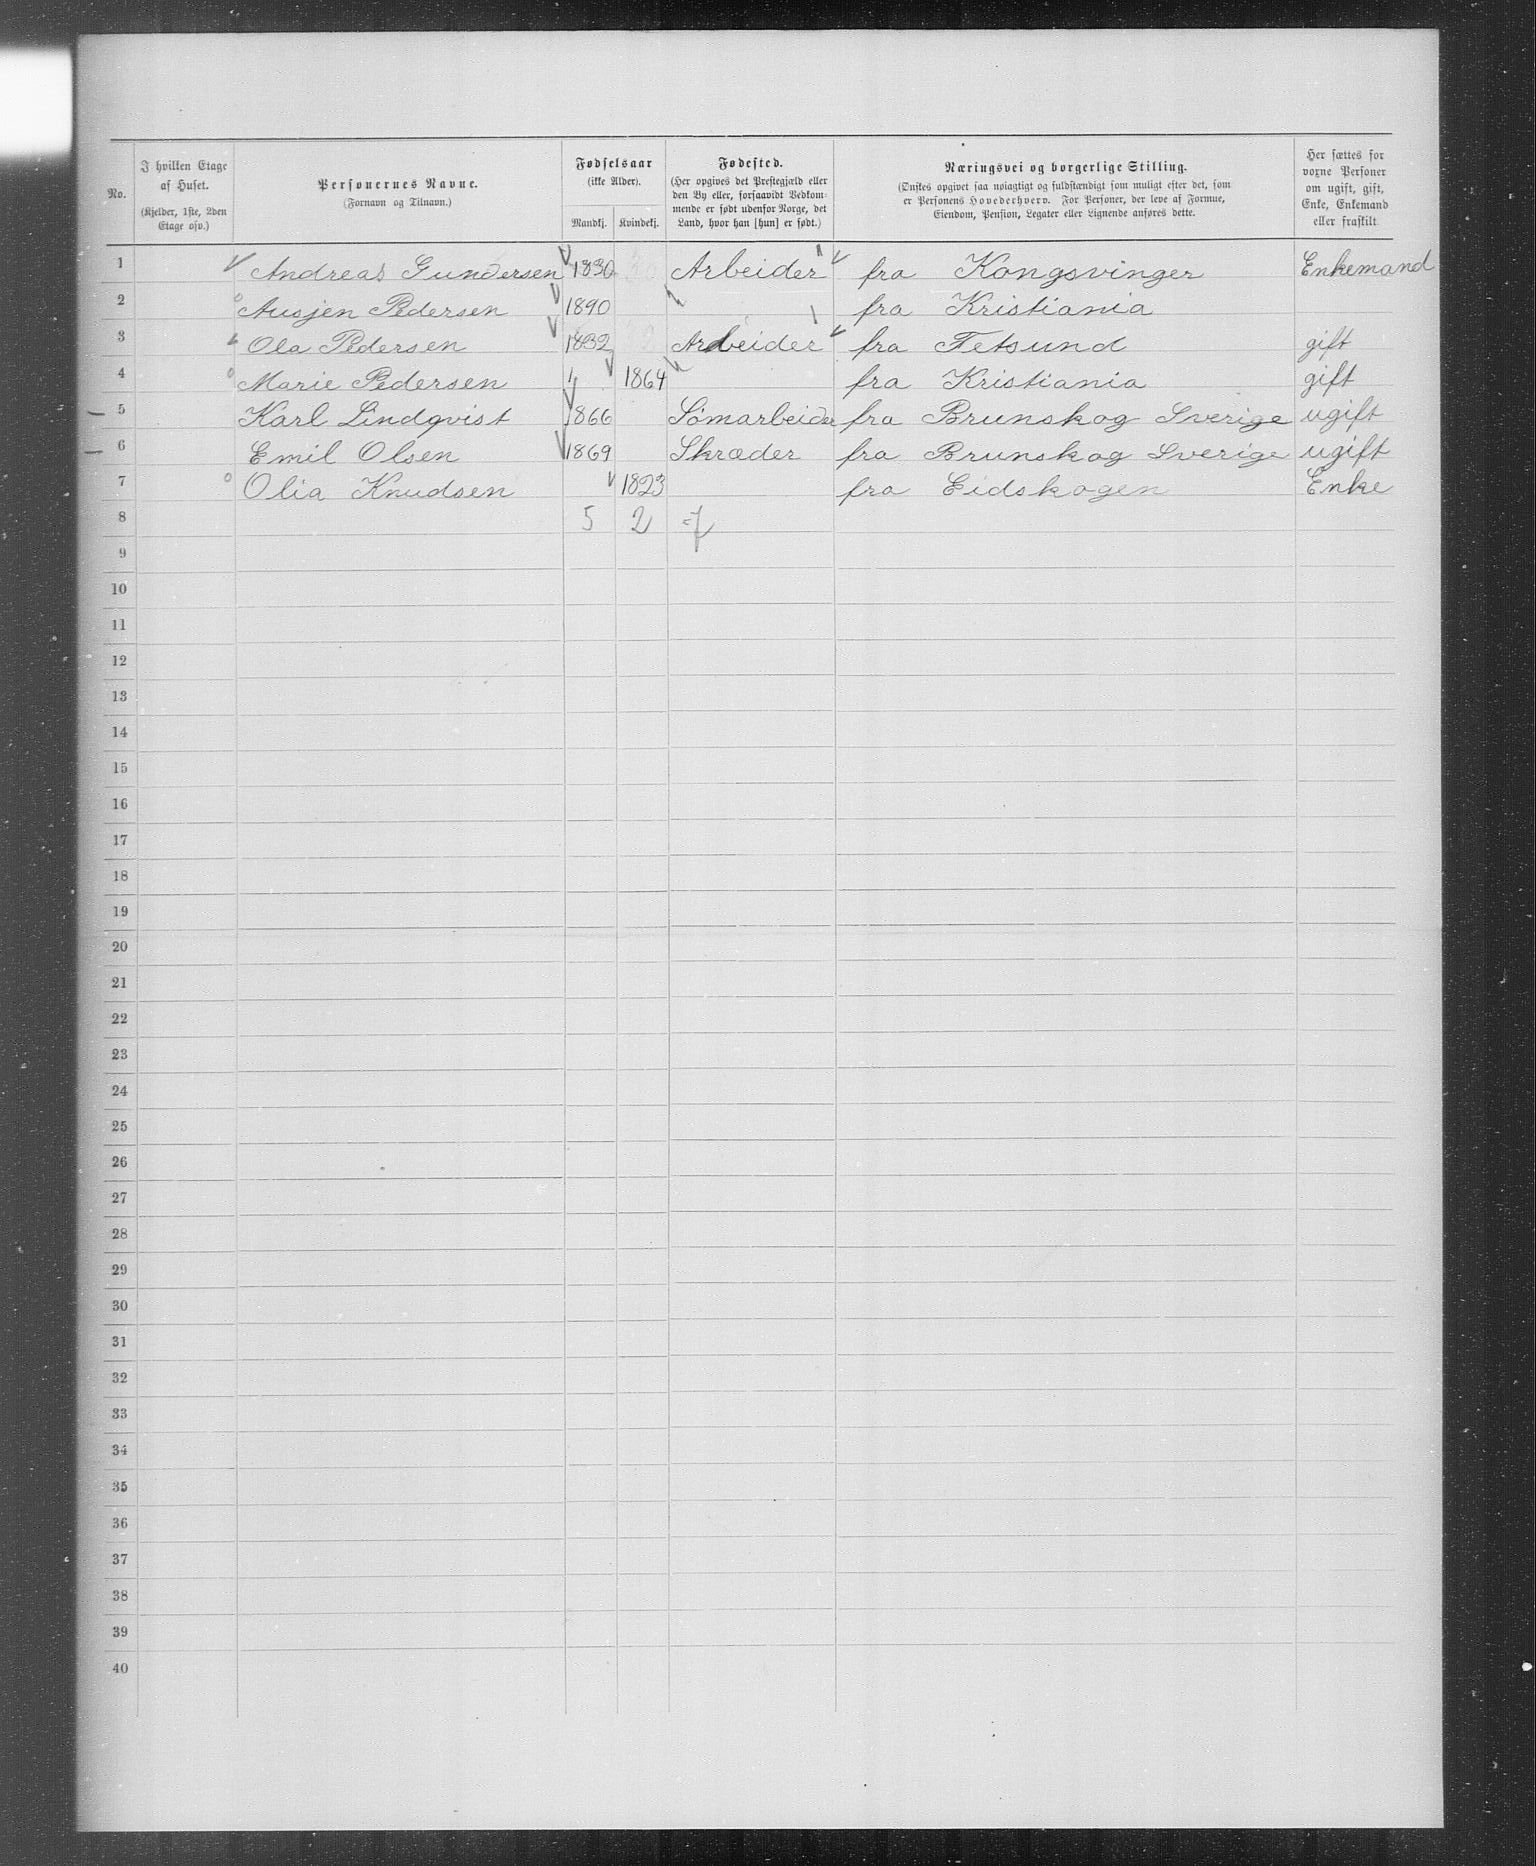 No.
I hvilken Etage af Huset.
(Kjelder, 1ste, 2den Etage osv.)
Personernes Navne.
(Fornavn og Tilnavn.)
Fødselsaar
(ikke Alder).
Mandkj. Kvindekj.
Fødested.
(Her opgives det Prestegjæld eller den By eller, forsaavidt Vedkommende er født udenfor Norge, det Land, hvor han [hun] er født.)
Næringsvei og borgerlige Stilling.
(Ønskes opgivet saa nøiagtigt og fuldstændigt som muligt efter det, som er Personens Hovederhverv. For Personer, der leve af Formue, Eiendom, Pension, Legater eller Lignende anføres dette.
Her sættes for voxne Personer om ugift, gift, Enke, Enkemand eller fraskilt
1 Andreas Gundersen 1830 Arbeider fra Kongsvinger Enkemand
2 Ausjen Pedersen 1890 fra Kristiania
3 Ola Pedersen 1832 Arbeider fra Fetsund gift
4 Marie Pedersen 1864 fra Kristiania gift
5 Karl Lindqvist 1866 Sömarbeider fra Brunskog Sverige ugift
6 Emil Olsen 1869 Skræder fra Brunskog Sverige ugift
7 Olia Knudsen 1823 fra Eidskogen Enke
8 5 2 =7
9
10
11
12
13
14
15
16
17
18
19
20
21
22
23
24
25
26
27
28
29
30
31
32
33
34
35
36
37
38
39
40